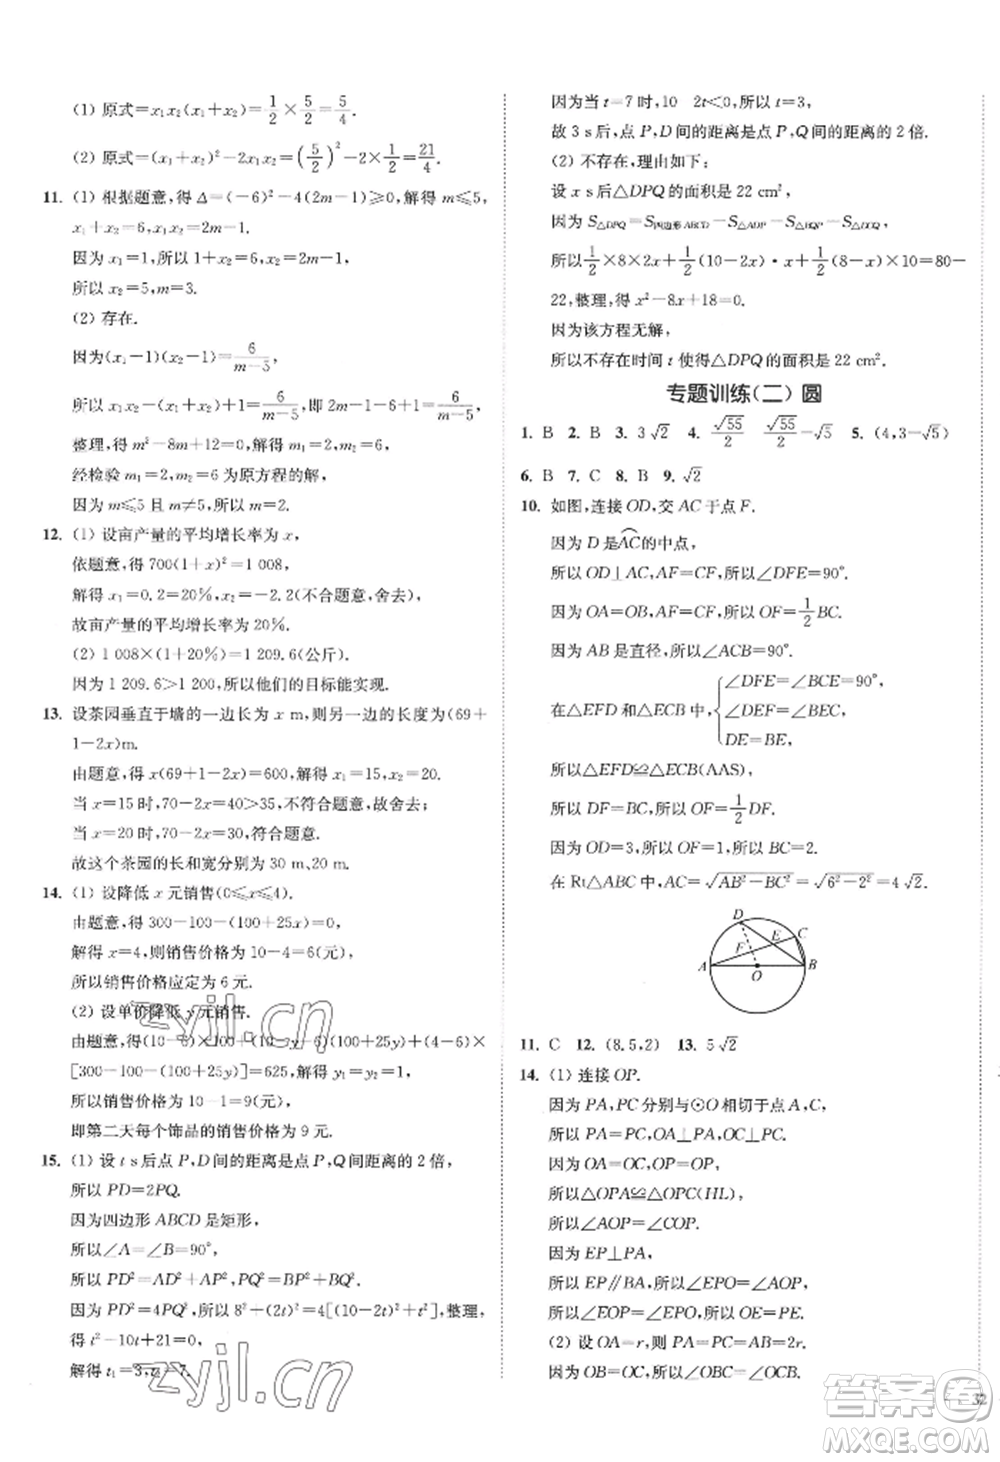 (1) 原式=x₁x₂(x₁+x₂)=1/2×5/2=5/4.
(2) 原式=(x₁+x₂)²-2x₁x₂=(5/2)²-2×1/2=21/4.
11. (1) 根据题意,得 Δ=(-6)²-4(2m-1)⩾0,解得 m⩽5,
x₁+x₂=6,x₁x₂=2m-1.
因为 x₁=1,所以 1+x₂=6,x₂=2m-1.
所以 x₂=5,m=3.
(2) 存在.
因为(x₁-1)(x₂-1)=6/(m-5),
所以 x₁x₂-(x₁+x₂)+1=6/(m-5),即 2m-1-6+1=6/(m-5),
整理,得 m²-8m+12=0,解得 m₁=2,m₂=6.
经检验 m₁=2,m₂=6 为原方程的解.
因为 m⩽5 且 m≠5,所以 m=2.
12. (1) 设亩产量的平均增长率为 x,
依题意,得 700(1+x)²=1 008,
解得 x₁=0.2=20%,x₂=-2.2(不合题意,舍去),
故亩产量的平均增长率为 20%.
(2) 1 008×(1+20%)=1 209.6(公斤).
因为 1 209.6>1 200,所以他们的目标能实现.
13. 设茶园垂直于墙的一边长为 x m,则另一边的长度为(69+
1-2x)m.
由题意,得 x(69+1-2x)=600,解得 x₁=15,x₂=20.
当 x=15 时,70-2x=40>35,不符合题意,故舍去;
当 x=20 时,70-2x=30,符合题意.
故这个茶园的长和宽分别为 30 m、20 m.
14. (1) 设降低 x 元销售(0⩽x⩽4).
由题意,得 300-100-(100+25x)=0.
解得 x=4,则销售价格为 10-4=6(元),
所以销售价格应定为 6 元.
(2) 设单价降低 y 元销售.
由题意,得(10-6)×100+(10-6-y)(100+25y)+(4-6)×
[300-100-(100+25y)]=300,解得 y₁=y₂=1.
所以销售价格为 10-1=9(元),
即第二天每个饰品的销售价格为 9 元.
15. (1) 设 t s后点 P,D间的距离是点P,Q间距离的 2 倍,
所以 PD=2PQ.
因为四边形 ABCD是矩形,
所以∠A=∠B=90°,
所以 PD²=AD²+AP²,PQ²=BP²+BQ².
因为 PD²=4PQ²,所以 8²+(2t)²=4[(10-2t)²+t²],整理,
得 t²-10t+21=0,
解得 t₁=3,t₂=7.
因为当 t=7 时,10 2t<0,所以 t=3,
故 3 s后,点 P,D 间的距离是点 P,Q间的距离的 2 倍.
(2) 不存在,理由如下:
设 x s后△DPQ的面积是 22 cm²,
因为 S△DPQ=S四边形ABCD-S△ADP-S△BQP-S△CDQ,
所以1/2×8×2x+1/2(10-2x)·x+1/2(8-x)×10=80-
22,整理,得 x²-8x+18=0.
因为该方程无解,
所以不存在时间 t 使得△DPQ的面积是 22 cm².
专题训练(二) 圆
1. B 2. B 3. 3√2 4. √55/2 √55/2-√5 5. (4,3-√5)
6. B 7. C 8. B 9. √2
10. 如图,连接 OD,交 AC于点 F.
因为 D 是A͡C的中点,
所以 OD⊥AC,AF=CF,所以∠DFE=90°.
因为 OA=OB,AF=CF,所以 OF=1/2BC.
因为 AB是直径,所以∠ACB=90°.
在△EFD和△ECB中,{∠DFE=∠BCE=90°, ∠DEF=∠BEC, DE=BE,
所以△EFD≌△ECB(AAS).
所以 DF=BC,所以 OF=1/2DF.
因为 OD=3,所以 OF=1,所以 BC=2.
在 Rt△ABC 中,AC=√(AB²-BC²)=√(6²-2²)=4√2.
D
E
C
F
A
O
B
11. C 12. (8.5,2) 13. 5√2
14. (1) 连接 OP.
因为 PA,PC分别与⊙O相切于点 A,C,
所以 PA=PC,OA⊥PA,OC⊥PC.
因为 OA=OC,OP=OP,
所以△OPA≌△OPC(HL),
所以∠AOP=∠COP.
因为 EP⊥PA,
所以 EP∥BA,所以∠EPO=∠AOP,
所以∠EOP=∠EPO,所以 OE=PE.
(2) 设 OA=r,则 PA=PC=AB=2r.
因为 OB=OC,所以∠OBC=∠OCB.
32
zyjl.cn
zyjl.cn
答案圈
MXQE.COM